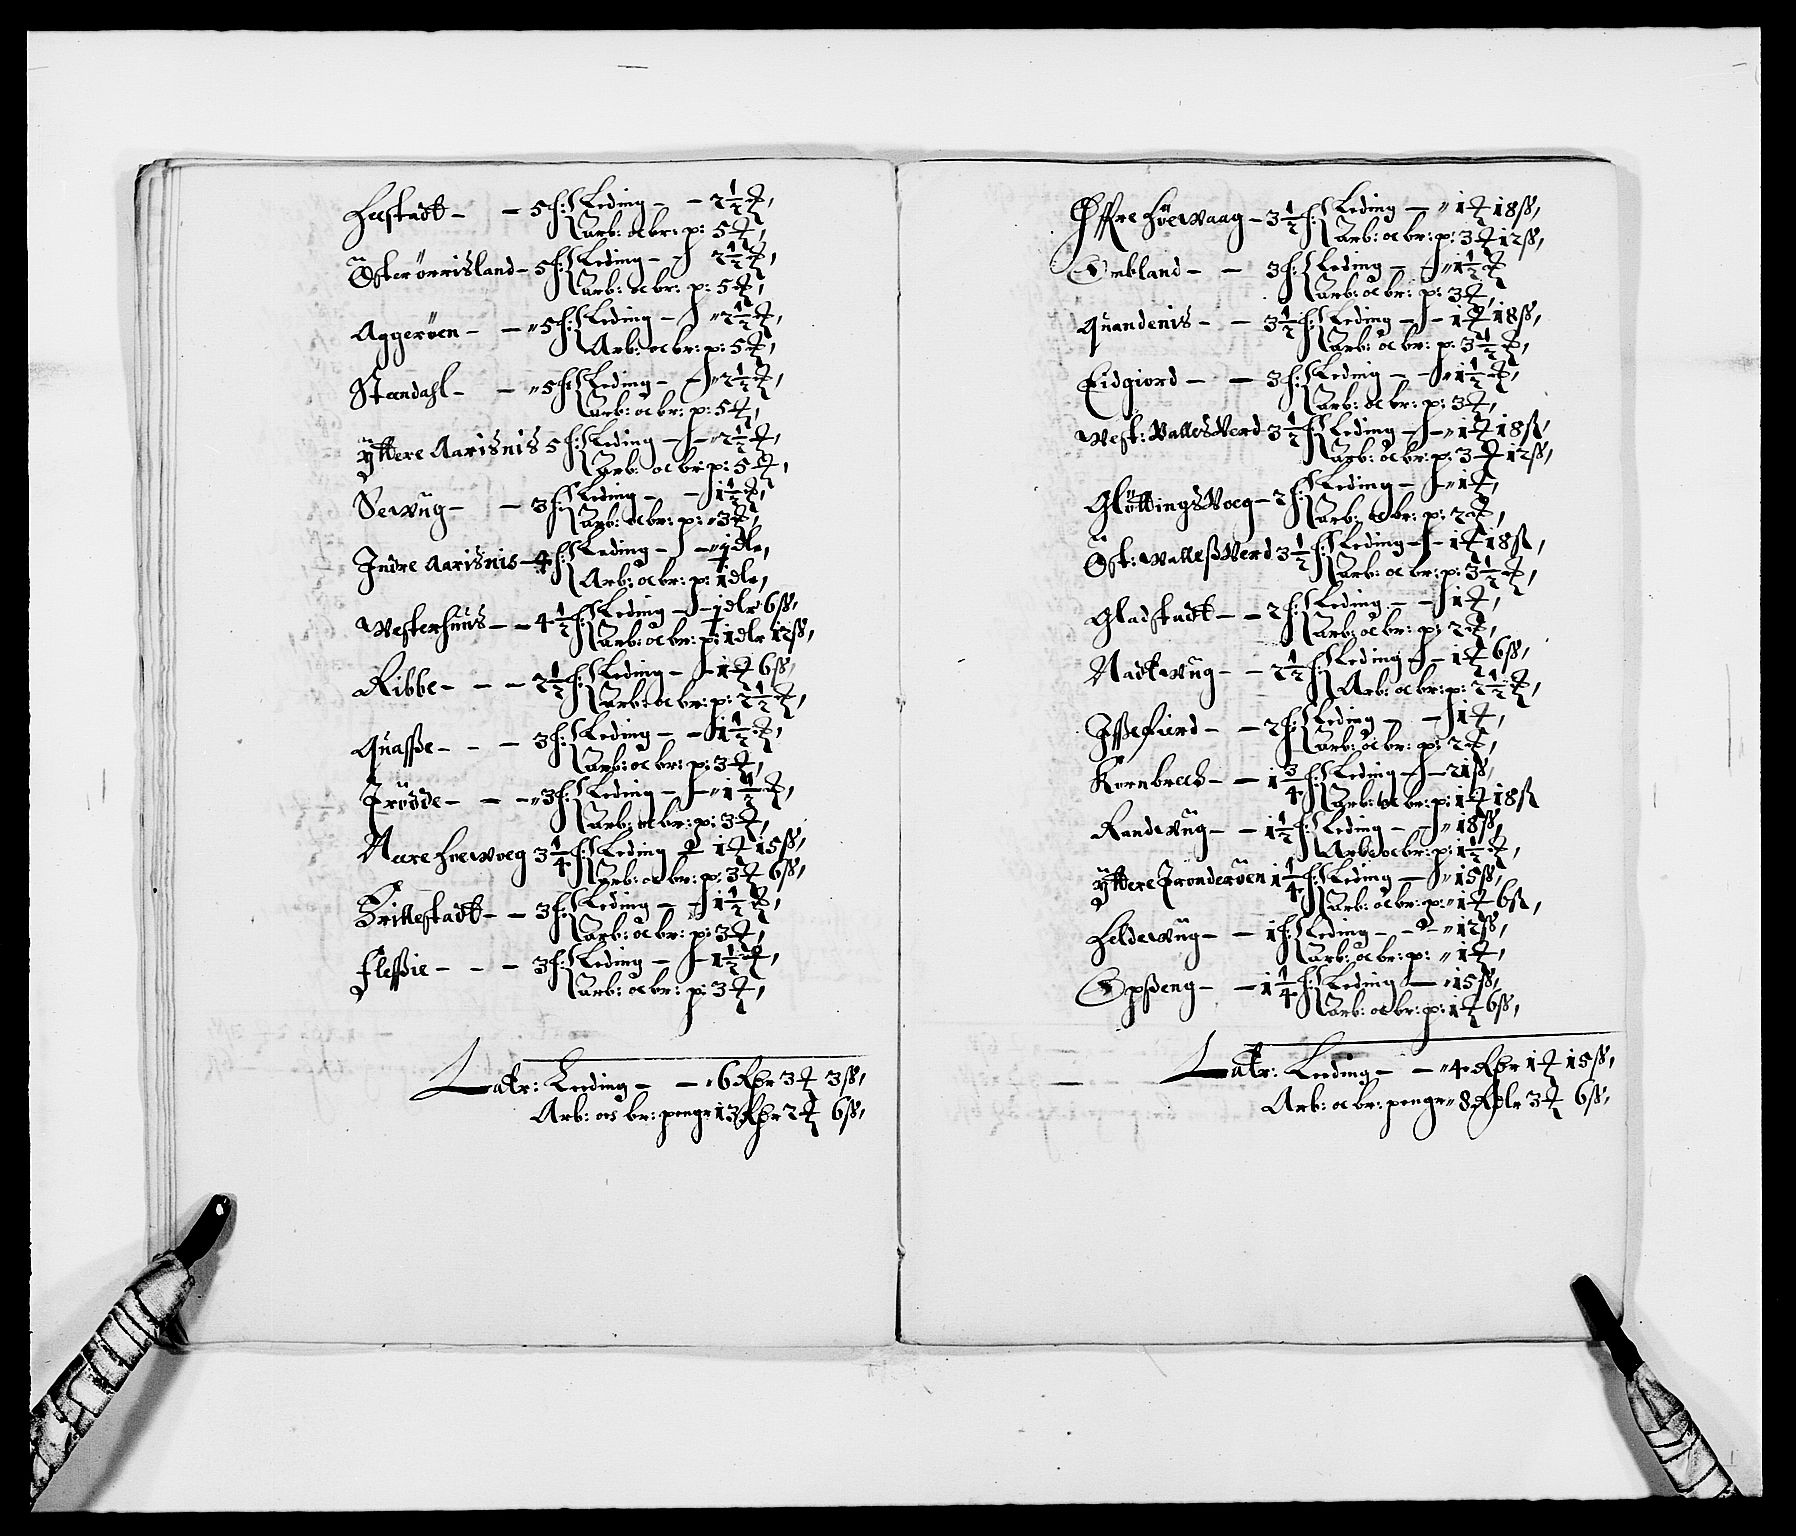 Heestadt - - 5 h: Leding - - 2½ ort,
Arb: oc br: p: 5 ort,
Østerørrisland - 5 h: Leding - - 2½ ort,
arb: oc br: p: 5 ort,
Aggerøen - - 5 h: Leding - - 2½ ort,
Arb: oc br: p: 5 ort,
Standahl - - 5 h: Leding - - 2½ ort,
arb: oc br: p: 5 ort,
Ÿttere Aarisnis 5 h: Leding - - 2½ ort,
arb: oc br: p: 5 ort,
Sewüg - - 3 h: Leding - - 1½ ort,
arb: oc br: p: 3 ort,
Indre Aarisnis - 4 h: Leding - - ½ dlr,
Arb: oc br: p: 1 dlr,
Westerhuus - - 4½ h: Leding - - ½ dlr 6 ß,
arb: oc br: p: 1 dlr 12 ß,
Ribbe - - - 2½ h: Leding - - 1 ort 6 ß,
arb: oc br: p: 2½ ort,
Quasse - - - 3 h: Leding - - 1½ ort,
arb: oc br: p: 3 ort,
Trødde - - - 3 h: Leding - - 1½ ort,
arb: oc br: p: 3 ort,
Aare Hoewoeg 3¼ h: Leding - 1 ort 15 ß,
arb: oc br: p: 3 ort 6 ß,
Brillestadt - - 3 h: Leding - - 1½ ort,
arb: oc br: p: 3 ort,
Flessie - - - 3 h: Leding - - 1½ ort,
arb: oc br: p: 3 ort,
Latr: Leeding - - 6 Rdr 3 ort 3 ß,
Arb: oc br: pengr 13 Rdr 2 ort 6 ß,
Øffre Høewaag - 3½ h: Leding - 1 ort 18 ß,
Arb: oc br: p: 3 ort 12 ß,
Ombland - - 3 h: Leding - - 1½ ort
arb: oc br: p: 3 ort,
Quandenis - - 3½ h: Leding - - 1 ort 18 ß,
arb: oc br: p: 3½ ort,
Eidgiord - - 3 h: Leding - - 1½ ort,
arb: oc br: p: 3 ort,
West: Vallesverd 3½ h: Leding - - 1 ort 18 ß,
arb: oc br: p: 3 ort 12 ß,
Gløttingsvoeg - 2 h: Leding - - 1 ort,
arb: oc br: p: 2 ort,
Øst: Wallesswerd 3½ h: Leding - - 1 ort 18 ß,
arb: oc br: p: 3½ ort,
Gladstadt - - 2 h: Leding - - 1 ort,
arb: oc br: p: 2 ort,
Nadkewüg - - 2½ h: Leding - - 1 ort 6 ß,
Arb: oc br: p: 2½ ort,
Issefierd - - 2 h: Leding - - 1 ort,
arb: oc br: p: 2 ort,
Kornbreck - - 1¾ h: Leding - - 21 ß,
arb: oc br: p: 1 ort 18 ß
Randewüg - - 1½ h: Leding - - 18 ß,
Arb: oc br: p: 1½ ort,
Ÿttere Trønderøen 1¼ h: Leding - - 15 ß,
arb: oc br: p: 1 ort 6 ß,
Heldewüg - - 1 h: Leding - - 12 ß,
arb: oc br: p: 1 ort,
Opseng - - 1¼ h: Leding - 15 ß,
arb: oc br: p: 1 ort 6 ß,
Latr: Leeding - - 4 Rdr 1 ort 15 ß,
Arb: oc br: pengr 8 Rdlr 3 ort 6 ß,